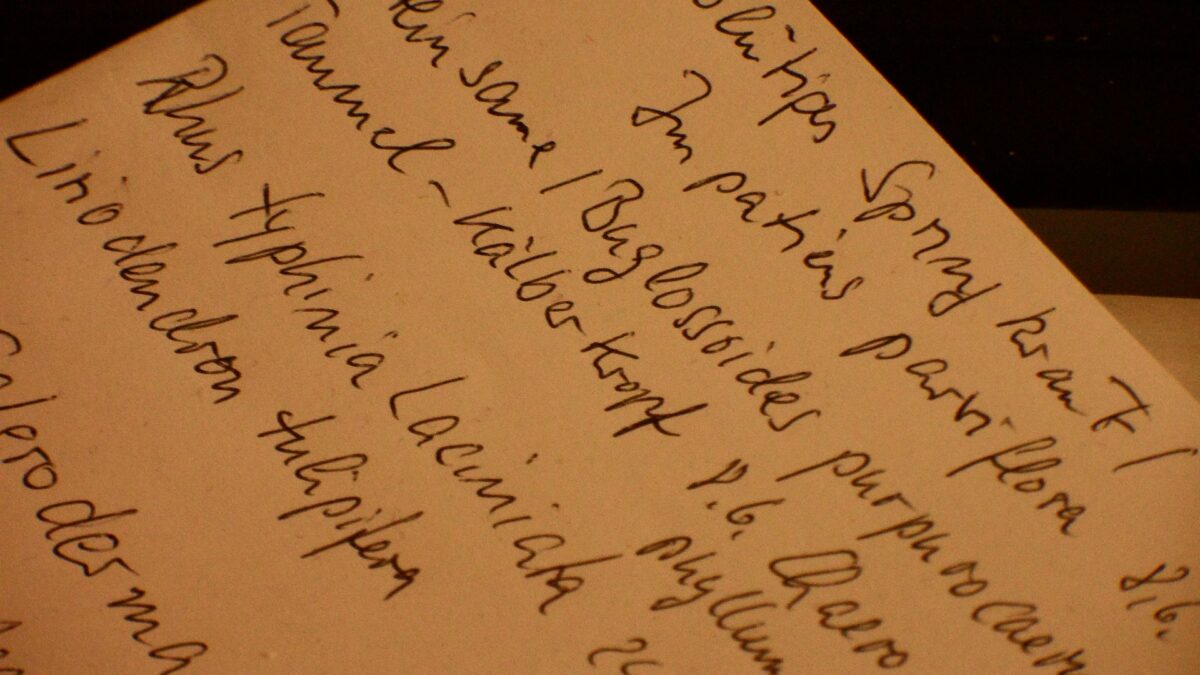 blütiges Springkraut /
Impatiens parviflora 8.6.
einsame / Buglossoides purpurocaeru
Taumel-Kälberkropf 8.6. Chaero
phyllum
Rhus typhinia Laciniata
Liriodendron tulipifera
leroderma